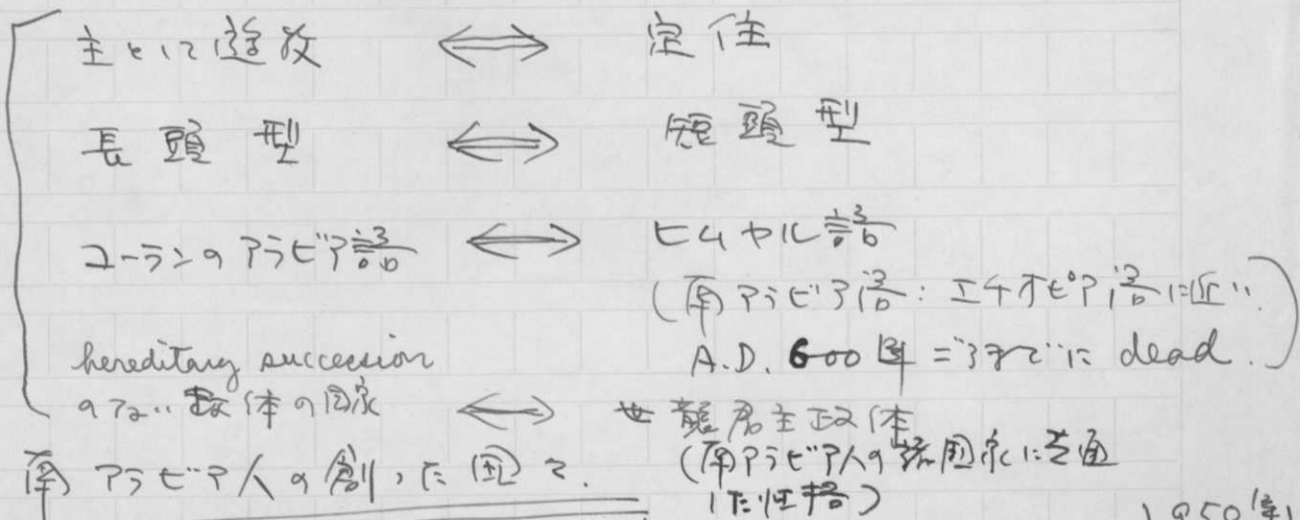 主として遊牧 ⟺ 定住
長頭型 ⟺ 短頭型
コーランのアラビア語 ⟺ ヒムヤル語
(南アラビア語:エチオピア語に近い.
A.D. 600年ごろまでに dead.)
hereditary succession
のない政体の国家 ⟺ 世襲君主政体
(南アラビア人の諸国家に共通
した性格)
南アラビア人の創った国々.
1950